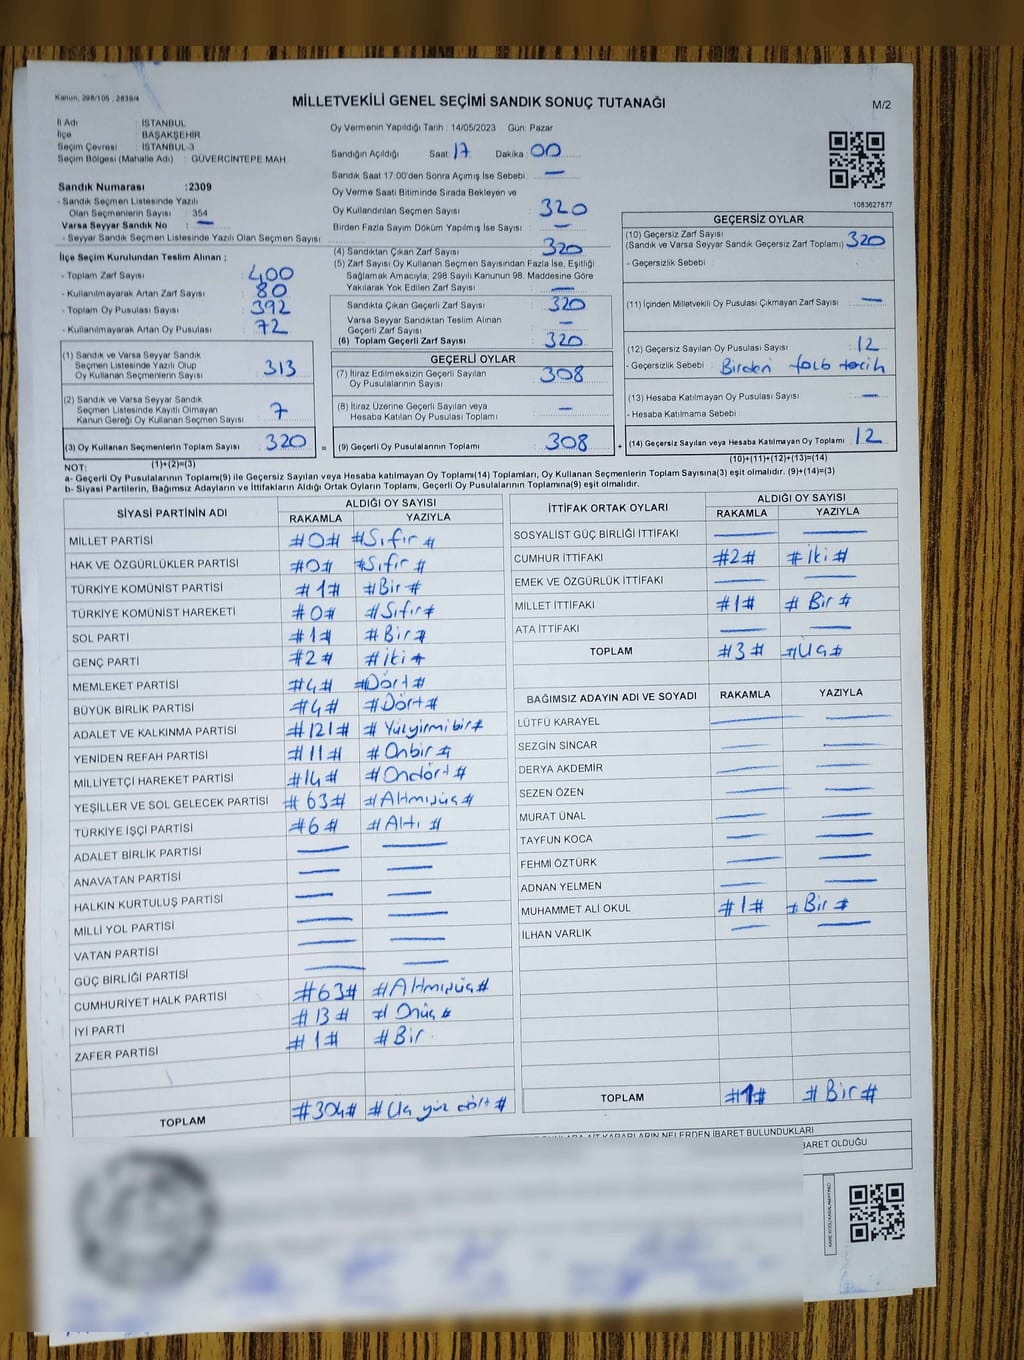 Kanun, 298/105 , 2839/4
MİLLETVEKİLİ GENEL SEÇİMİ SANDIK SONUÇ TUTANAĞI
M/2
İl Adı : İSTANBUL
İlçe : BAŞAKŞEHİR
Seçim Çevresi : İSTANBUL-3
Seçim Bölgesi (Mahalle Adı) : GÜVERCİNTEPE MAH
Oy Vermenin Yapıldığı Tarih : 14/05/2023 Gün: Pazar
Sandığın Açıldığı Saat 17 Dakika 00
Sandık Saat 17.00'den Sonra Açımış İse Sebebi : —
Oy Verme Saati Bitiminde Sırada Bekleyen ve
Oy Kullandırılan Seçmen Sayısı 320
Birden Fazla Sayım Döküm Yapılmış İse Sayısı —
1083627877
Sandık Numarası :2309
- Sandık Seçmen Listesinde Yazılı
Olan Seçmenlerin Sayısı : 354
Varsa Seyyar Sandık No : —
- Seyyar Sandık Seçmen Listesinde Yazılı Olan Seçmen Sayısı
İlçe Seçim Kurulundan Teslim Alınan ;
- Toplam Zarf Sayısı : 400
- Kullanılmayarak Artan Zarf Sayısı : 80
- Toplam Oy Pusulası Sayısı : 392
- Kullanılmayarak Artan Oy Pusulası : 72
(1) Sandık ve Varsa Seyyar Sandık
Seçmen Listesinde Yazılı Olup
Oy Kullanan Seçmenlerin Sayısı 313
(2) Sandık ve Varsa Seyyar Sandık
Seçmen Listesinde Kayıtlı Olmayan
Kanun Gereği Oy Kullanan Seçmen Sayısı 7
(3) Oy Kullanan Seçmenlerin Toplam Sayısı 320 =
(1)+(2)=(3)
(4) Sandıktan Çıkan Zarf Sayısı 320
(5) Zarf Sayısı Oy Kullanan Seçmen Sayısından Fazla İse, Eşitliği
Sağlamak Amacıyla; 298 Sayılı Kanunun 98. Maddesine Göre
Yakılarak Yok Edilen Zarf Sayısı —
Sandıkta Çıkan Geçerli Zarf Sayısı 320
Varsa Seyyar Sandıktan Teslim Alınan
Geçerli Zarf Sayısı —
(6) Toplam Geçerli Zarf Sayısı 320
GEÇERLİ OYLAR
(7) İtiraz Edilmeksizin Geçerli Sayılan
Oy Pusulalarının Sayısı 308
(8) İtiraz Üzerine Geçerli Sayılan veya
Hesaba Katılan Oy Pusulası Toplamı —
(9) Geçerli Oy Pusulalarının Toplamı 308 +
GEÇERSİZ OYLAR
(10) Geçersiz Zarf Sayısı
(Sandık ve Varsa Seyyar Sandık Geçersiz Zarf Toplamı) 320
- Geçersizlik Sebebi :
(11) İçinden Milletvekili Oy Pusulası Çıkmayan Zarf Sayısı —
(12) Geçersiz Sayılan Oy Pusulası Sayısı 12
- Geçersizlik Sebebi : Birden
(13) Hesaba Katılmayan Oy Pusulası Sayısı —
- Hesaba Katılmama Sebebi :
(14) Geçersiz Sayılan veya Hesaba Katılmayan Oy Toplamı 12
(10)+(11)+(12)+(13)=(14)
NOT:
a- Geçerli Oy Pusulalarının Toplamı(9) ile Geçersiz Sayılan veya Hesaba katılmayan Oy Toplamı(14) Toplamları, Oy Kullanan Seçmenlerin Toplam Sayısına(3) eşit olmalıdır. (9)+(14)=(3)
b- Siyasi Partilerin, Bağımsız Adayların ve İttifakların Aldığı Ortak Oyların Toplamı, Geçerli Oy Pusulalarının Toplamına(9) eşit olmalıdır.
SİYASİ PARTİNİN ADI ALDIĞI OY SAYISI
RAKAMLA YAZIYLA
MİLLET PARTİSİ #0# #Sıfır#
HAK VE ÖZGÜRLÜKLER PARTİSİ #0# #Sıfır#
TÜRKİYE KOMÜNİST PARTİSİ #1# #Bir#
TÜRKİYE KOMÜNİST HAREKETİ #0# #Sıfır#
SOL PARTİ #1# #Bir#
GENÇ PARTİ #2# #iki#
MEMLEKET PARTİSİ #4# #Dört#
BÜYÜK BİRLİK PARTİSİ #4# #Dört#
ADALET VE KALKINMA PARTİSİ #121# #Yüzyirmibir#
YENİDEN REFAH PARTİSİ #11# #Onbir#
MİLLİYETÇİ HAREKET PARTİSİ #14# #Ondört#
YEŞİLLER VE SOL GELECEK PARTİSİ #63# #Altmışüç#
TÜRKİYE İŞÇİ PARTİSİ #6# #Altı#
ADALET BİRLİK PARTİSİ — —
ANAVATAN PARTİSİ — —
HALKIN KURTULUŞ PARTİSİ — —
MİLLİ YOL PARTİSİ — —
VATAN PARTİSİ — —
GÜÇ BİRLİĞİ PARTİSİ — —
CUMHURİYET HALK PARTİSİ #63# #Altmışüç#
İYİ PARTİ #13# #Onüç#
ZAFER PARTİSİ #1# #Bir
TOPLAM #304# #Üç yüz dört#
İTTİFAK ORTAK OYLARI ALDIĞI OY SAYISI
RAKAMLA YAZIYLA
SOSYALİST GÜÇ BİRLİĞİ İTTİFAKI — —
CUMHUR İTTİFAKI #2# #iki#
EMEK VE ÖZGÜRLÜK İTTİFAKI — —
MİLLET İTTİFAKI #1# #Bir#
ATA İTTİFAKI — —
TOPLAM #3# #Üç#
BAĞIMSIZ ADAYIN ADI VE SOYADI RAKAMLA YAZIYLA
LÜTFÜ KARAYEL — —
SEZGİN SİNCAR — —
DERYA AKDEMİR — —
SEZEN ÖZEN — —
MURAT ÜNAL — —
TAYFUN KOCA — —
FEHMİ ÖZTÜRK — —
ADNAN YELMEN — —
MUHAMMET ALİ OKUL #1# #Bir#
İLHAN VARLIK — —
TOPLAM #1# #Bir#
KARARLARIN NELERDEN İBARET BULUNDUKLARI
BARET OLDUĞU